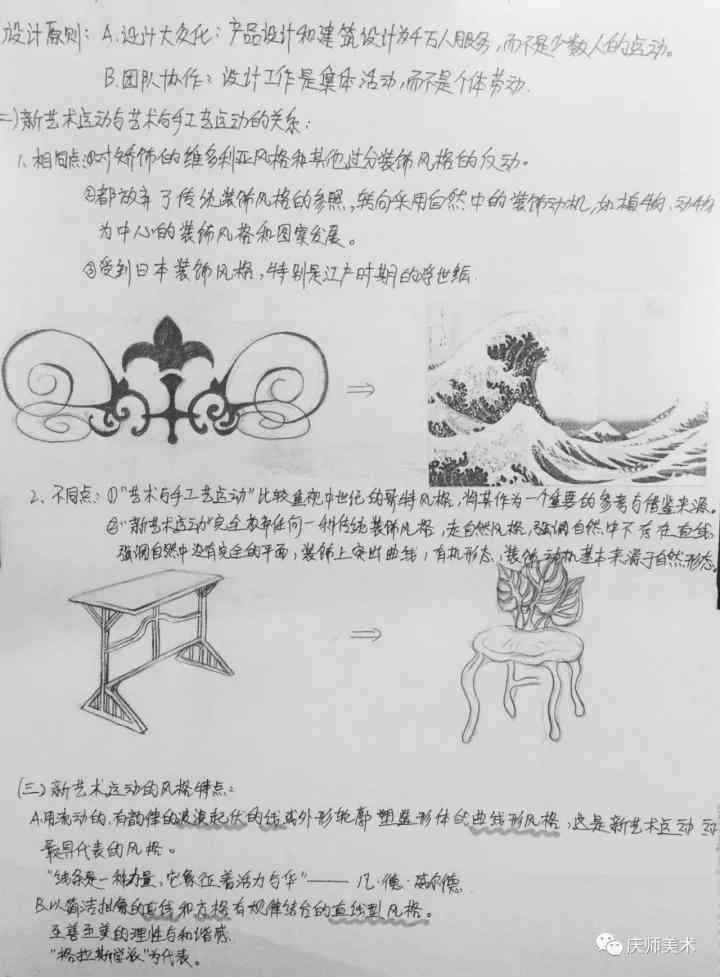 设计原则：A.设计大众化：产品设计和建筑设计为千万人服务，而不是少数人的运动。
B.团队协作：设计工作是集体活动，而不是个体劳动.
二)新艺术运动与艺术与手工艺运动的关系：
1、相同点①对矫饰的维多利亚风格和其他过分装饰风格的反动。
②都放弃了传统装饰风格的参照，转向采用自然中的装饰动机，如植物、动物
为中心的装饰风格和图案发展。
③受到日本装饰风格，特别是江户时期的浮世绘.
2、不同点：①"艺术与手工艺运动"比较重视中世纪的哥特风格，将其作为一个重要的参考与借鉴来源。
②"新艺术运动"完全放弃任何一种传统装饰风格，走自然风格，强调自然中不存在直线
强调自然中没有完全的平面，装饰上突出曲线，有机形态，装饰动机基本来源于自然形态。
(三)新艺术运动的风格特点：
A.用流动的、有韵律的波浪起伏的线或外形轮廓塑造形体的曲线形风格，这是新艺术运动
最具代表的风格。
"线条是一种力量，它象征着活力与华"——凡·德·威尔德
B.以简洁抽象的直线和方格有规律结合的直线型风格。
至善至美的理性与和谐感
"格拉斯学派"为代表。
庆师美术